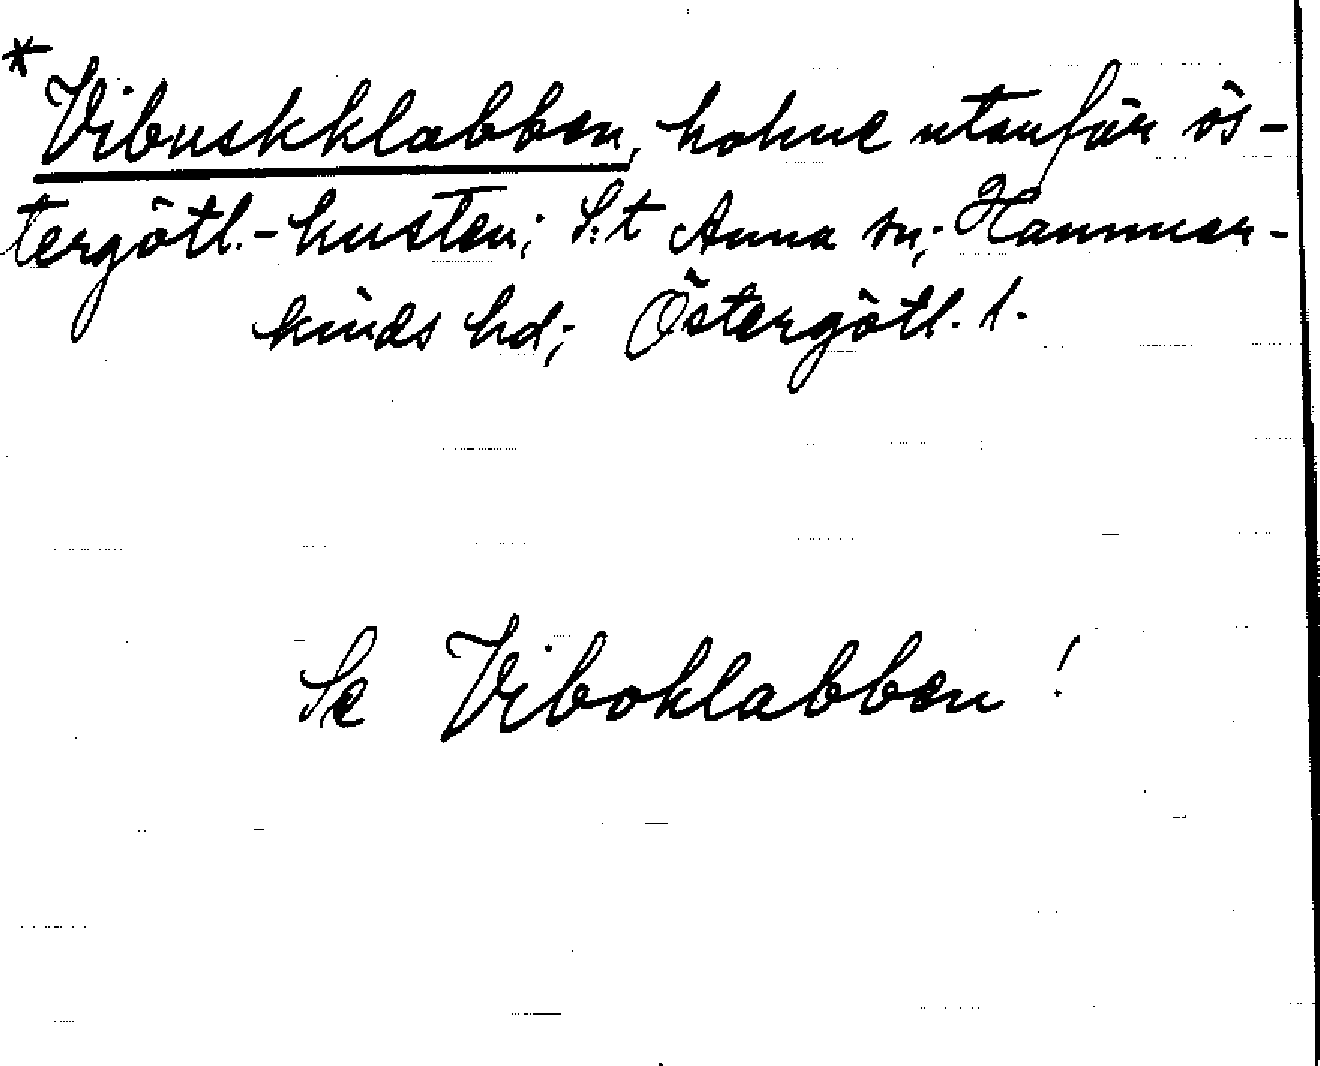 * Vibuskklabben, holme utanför ös-
tergötl.-kusten; S:t Anna sn; Hammar-
kinds hd; Östergötl. l.
Se Viboklabben!